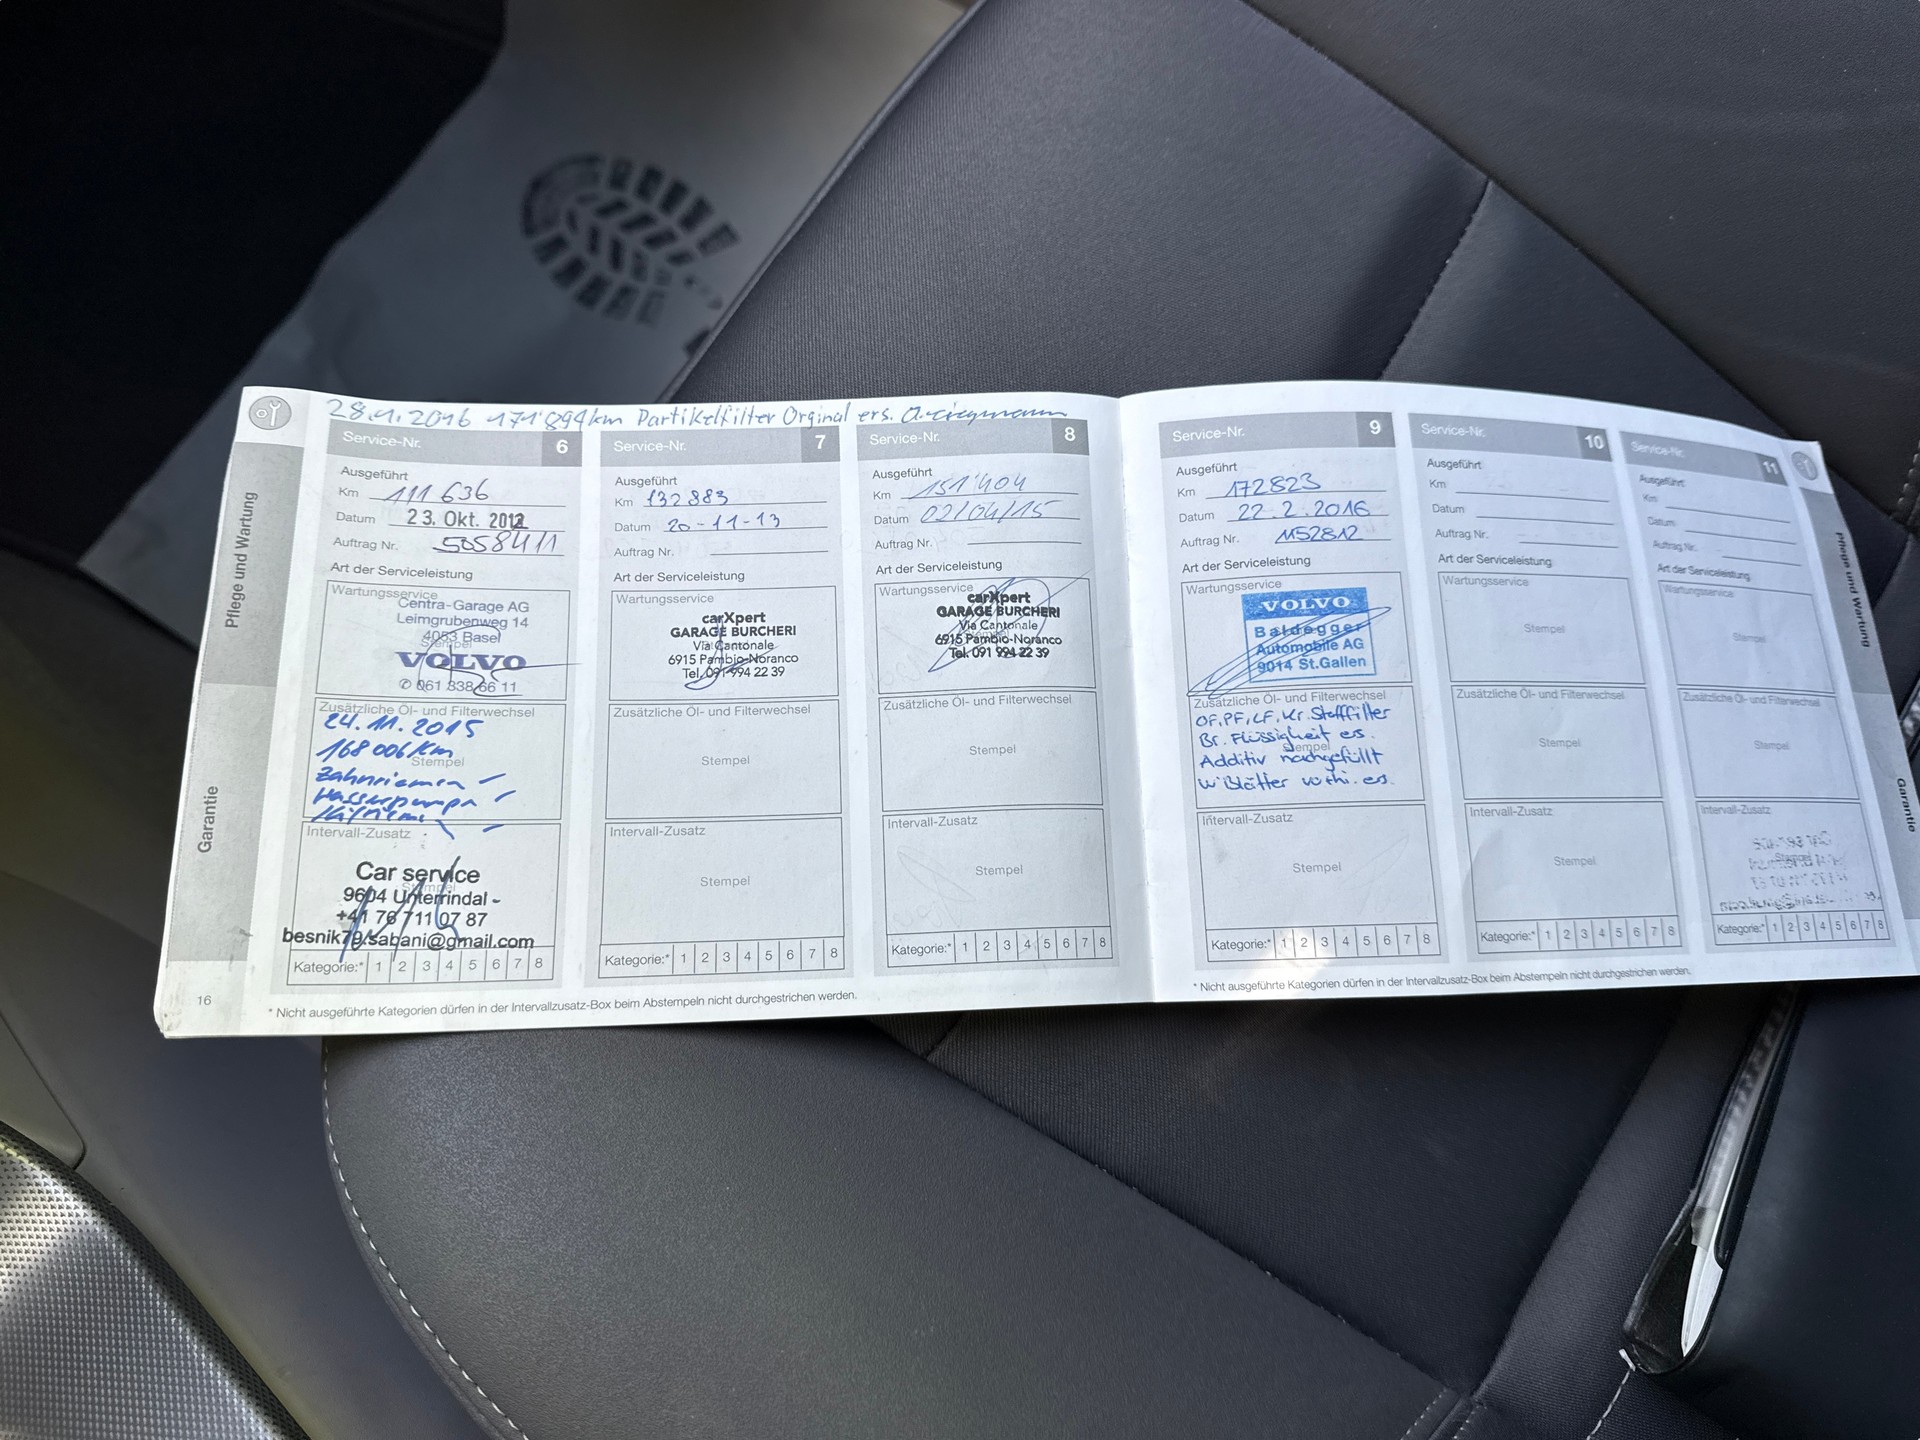 28.1.2016 171'894km Partikelfilter Orginal ers.
Pflege und Wartung
Garantie
Service-Nr. 6
Ausgeführt
Km 111 636
Datum 23. Okt. 2012
Auftrag Nr. 5058411
Art der Serviceleistung
Wartungsservice
Centra-Garage AG
Leimgrubenweg 14
4053 Basel
Stempel
VOLVO
✆ 061 338 66 11
Zusätzliche Öl- und Filterwechsel
24.11.2015
168 006 Km
Stempel
Zahnriemen
Wasserpumpe
Intervall-Zusatz
Car service
Stempel
9604 Unterrindal -
+41 76 711 07 87
besnik79.sabani@gmail.com
Kategorie:* 1 2 3 4 5 6 7 8
Service-Nr. 7
Ausgeführt
Km 132 883
Datum 20-11-13
Auftrag Nr.
Art der Serviceleistung
Wartungsservice
carXpert
GARAGE BURCHERI
Via Cantonale
6915 Pambio-Noranco
Tel. 091 994 22 39
Zusätzliche Öl- und Filterwechsel
Stempel
Intervall-Zusatz
Stempel
Kategorie:* 1 2 3 4 5 6 7 8
Service-Nr. 8
Ausgeführt
Km 151'404
Datum 02/04/15
Auftrag Nr.
Art der Serviceleistung
Wartungsservice
carXpert
GARAGE BURCHERI
Via Cantonale
6915 Pambio-Noranco
Tel. 091 994 22 39
Zusätzliche Öl- und Filterwechsel
Stempel
Intervall-Zusatz
Stempel
Kategorie:* 1 2 3 4 5 6 7 8
16
* Nicht ausgeführte Kategorien dürfen in der Intervallzusatz-Box beim Abstempeln nicht durchgestrichen werden.
Service-Nr. 9
Ausgeführt
Km 172823
Datum 22.2.2016
Auftrag Nr. 1152812
Art der Serviceleistung
Wartungsservice
VOLVO
Baldegger
Automobile AG
9014 St.Gallen
Zusätzliche Öl- und Filterwechsel
OF, PF, LF, Kr. Stofffilter
Br. Flüssigkeit ers.
Stempel
Additiv nachgefüllt
W'Blätter vo+hi. ers.
Intervall-Zusatz
Stempel
Kategorie:* 1 2 3 4 5 6 7 8
Service-Nr. 10
Ausgeführt
Km
Datum
Auftrag Nr.
Art der Serviceleistung
Wartungsservice
Stempel
Zusätzliche Öl- und Filterwechsel
Stempel
Intervall-Zusatz
Stempel
Kategorie:* 1 2 3 4 5 6 7 8
Service-Nr. 11
Ausgeführt
Km
Datum
Auftrag Nr.
Art der Serviceleistung
Wartungsservice
Stempel
Zusätzliche Öl- und Filterwechsel
Stempel
Intervall-Zusatz
Stempel
Kategorie:* 1 2 3 4 5 6 7 8
* Nicht ausgeführte Kategorien dürfen in der Intervallzusatz-Box beim Abstempeln nicht durchgestrichen werden.
Pflege und Wartung
Garantie